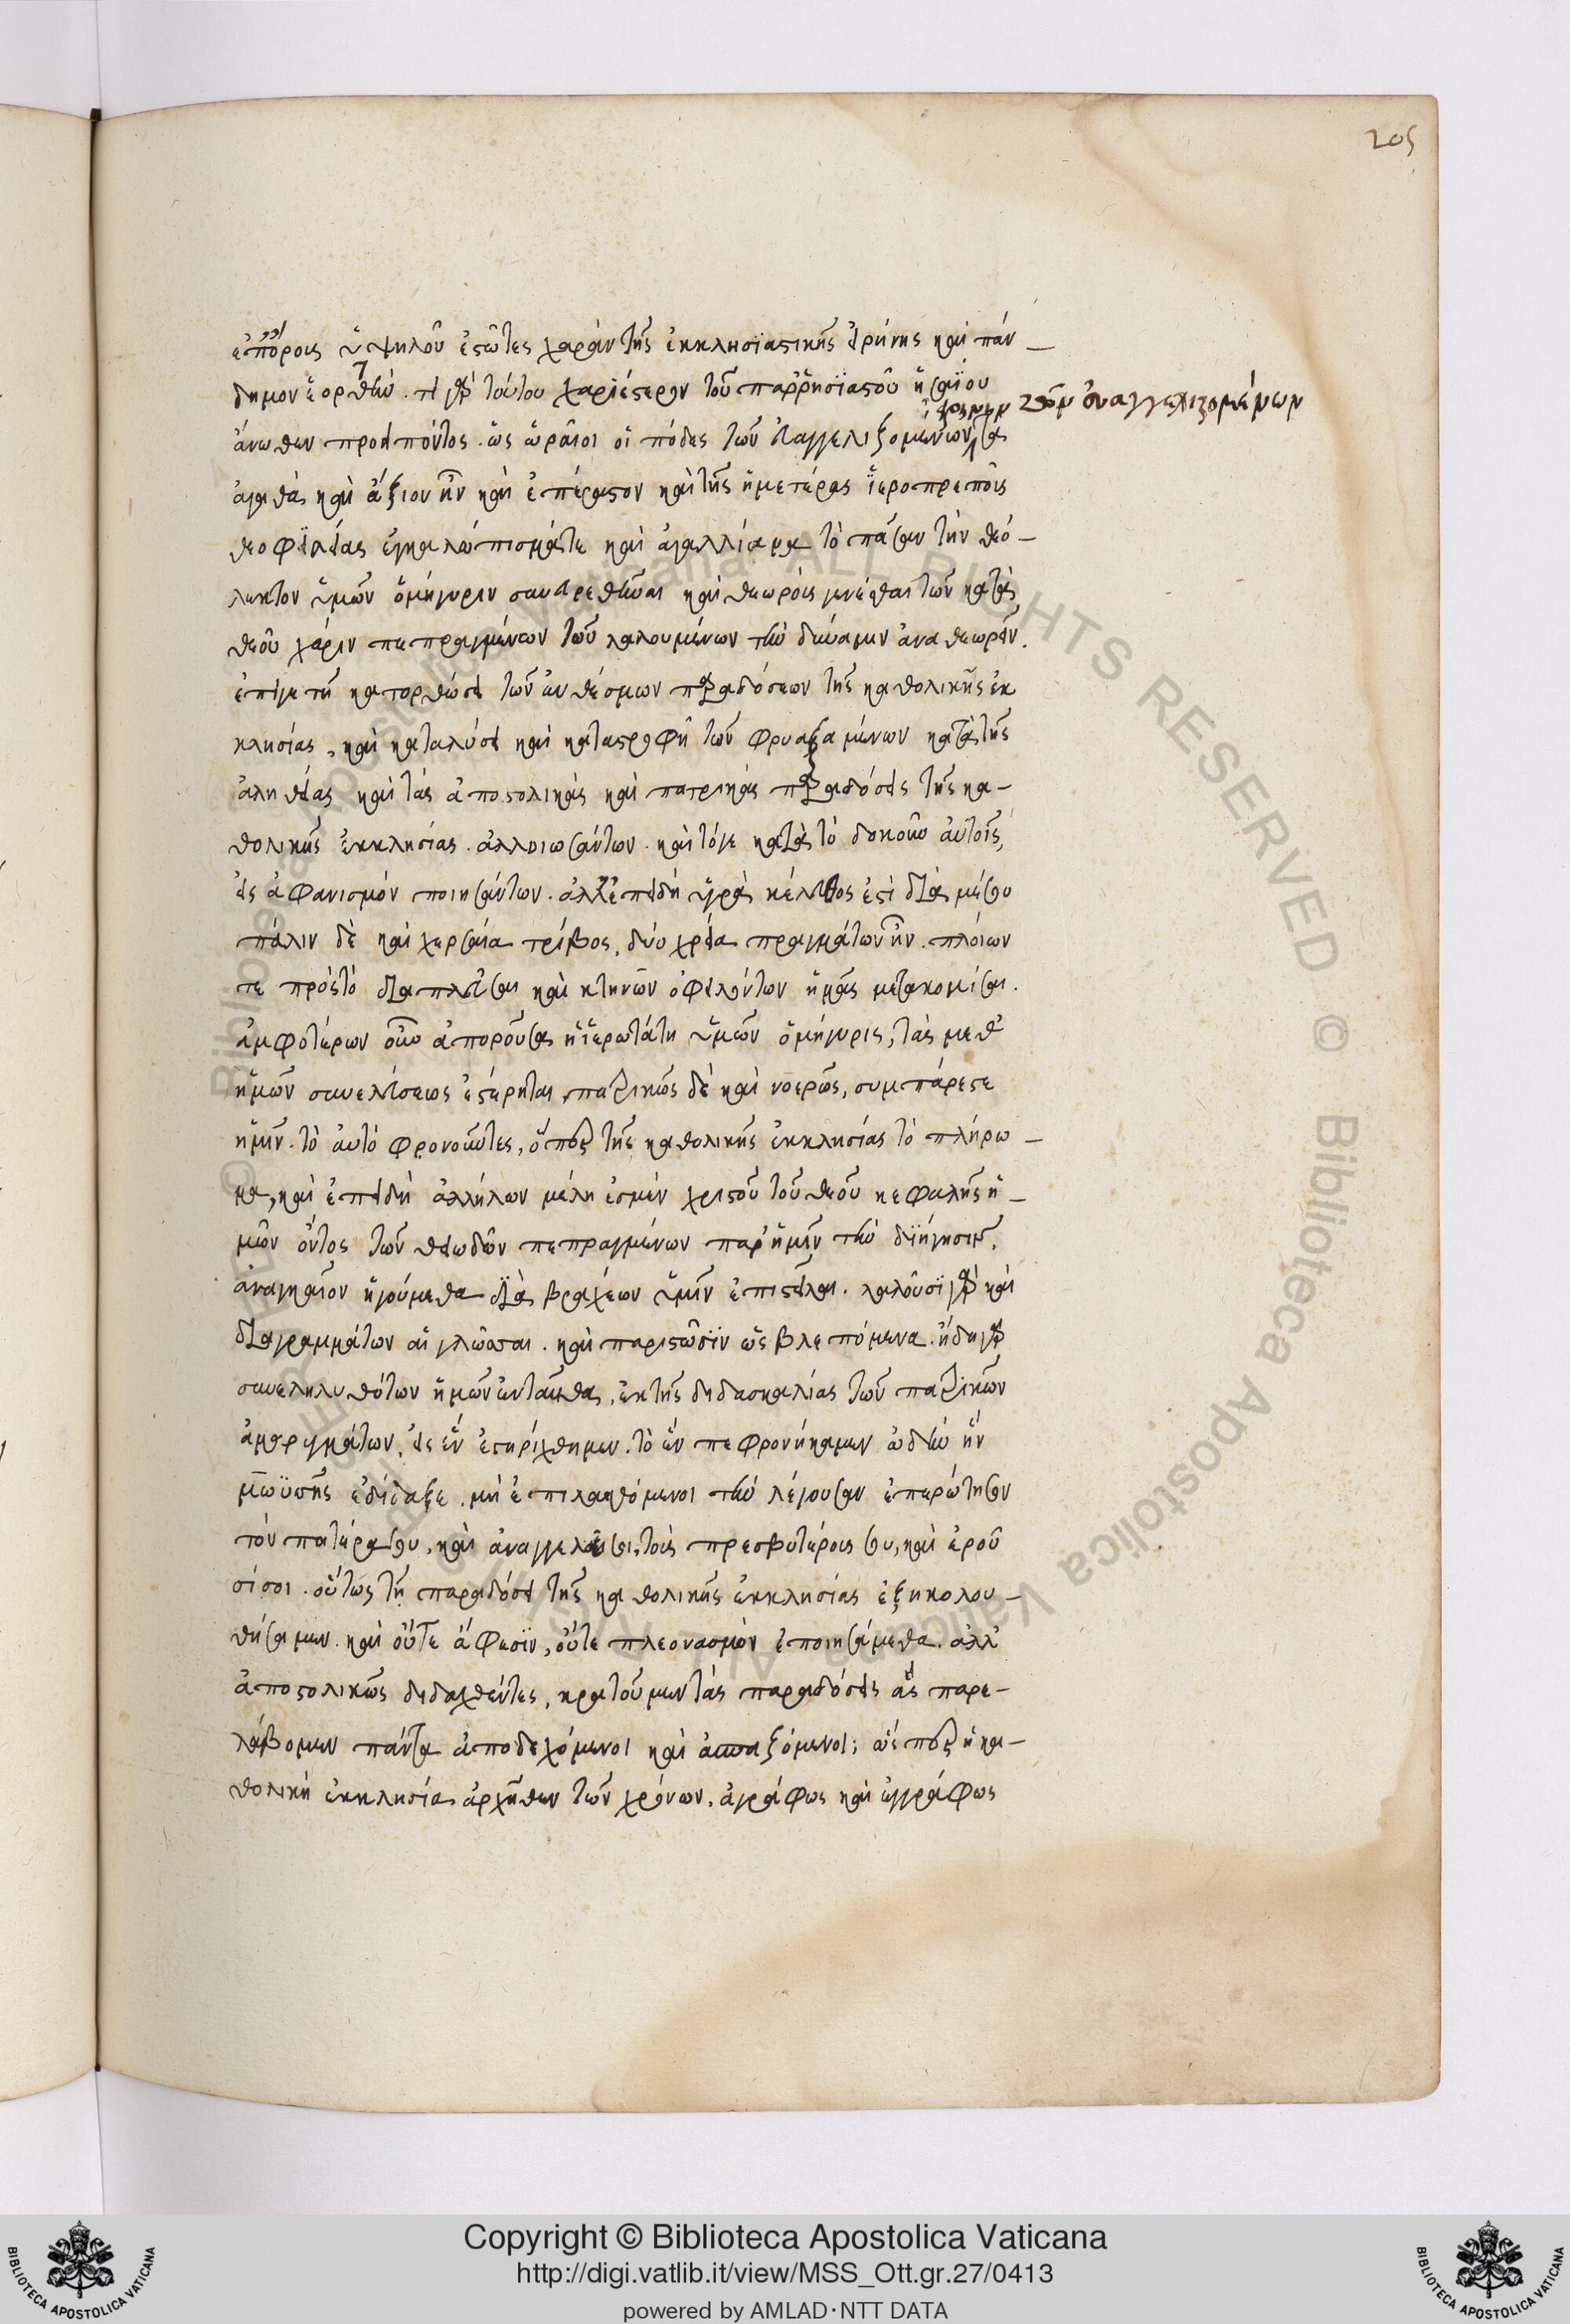 205
ἐπ' ὄρους ὑψηλοῦ ἑστῶτες χαρὰν τῆς ἐκκλησιαστικῆς εἰρήνης καὶ πάν–
δημον ἑορτὴν. τί γὰρ τούτου χαριέστερον τοῦ παρρησιαστοῦ ἡσαΐου
εἰρήνην τῶν εὐαγγελιζομένων
ἄνωθεν προειπόντος. ὡς ὡραῖοι οἱ πόδες τῶν εὐαγγελιζομένων τὰ
ἀγαθά, καὶ ἄξιον ἦν καὶ ἐπέραστον καὶ τῆς ἡμετέρας ἱεροπρεποῦς
θεοφιλείας ἐγκαλώπισμά τε καὶ ἀγαλλίαμα τὸ πᾶσαν τὴν θεό–
λεκτον ὑμῶν ὁμήγυριν συνευρεθῆναι καὶ θεωροὺς γενέσθαι τῶν κατὰ
θεοῦ χάριν πεπραγμένων τῶν λαλουμένων τὴν δύναμιν ἀναθεωρεῖν.
ἐπί γε τῇ κατορθώσει τῶν ἐνθέσμων παραδόσεων τῆς καθολικῆς ἐκ
κλησίας, καὶ καταλύσει καὶ καταστροφῇ τῶν φρυαξαμένων κατὰ τῆς
ἀληθείας καὶ τὰς ἀποστολικὰς καὶ πατρικὰς παραδόσεις τῆς κα–
θολικῆς ἐκκλησίας. ἀλλοιωσάντων. καὶ τό γε κατὰ τὸ δοκοῦν αὐτοῖς,
εἰς ἀφανισμὸν ποιησάντων. ἀλλ' ἐπειδὴ ὑγρὰ κέλευθος ἐστὶ διὰ μέσου
πάλιν δὲ καὶ χερσαία τρίβος, δύο χρεία πραγμάτων ἦν. πλοίων
τε πρὸς τὸ διαπλεῦσαι καὶ κτηνῶν ὀφειλόντων ἡμᾶς μετακομίσαι.
ἀμφοτέρων οὖν ἀποροῦσα ἡ ἱερωτάτη ὑμῶν ὁμήγυρις, τὰς μεθ'
ἡμῶν συνελεύσεως ἐστέρηται, πατρικῶς δὲ καὶ νοερῶς, συμπάρεστε
ἡμῖν. τὸ αὐτὸ φρονοῦντες, ὅπερ τῆς καθολικῆς ἐκκλησίας τὸ πλήρω–
μα, καὶ ἐπειδὴ ἀλλήλων μέλη ἐσμὲν χριστοῦ τοῦ θεοῦ κεφαλῆς ἡ–
μῶν ὄντος τῶν θεωδῶν πεπραγμένων παρ' ἡμῖν τὴν διήγησιν,
ἀναγκαῖον ἡγούμεθα διὰ βραχέων ὑμῖν ἐπιστεῖλαι. λαλοῦσι γὰρ καὶ
διὰ γραμμάτων αἱ γλῶσσαι. καὶ παριστῶσιν ὡς βλεπόμενα. ἤδη γὰρ
συνεληλυθότων ἡμῶν ἐνταῦθα, ἐκ τῆς διδασκαλίας τῶν πατρικῶν
εἰς ἓν ἐστηρίχθημεν. τὸ ἓν πεφρονήκαμεν ὠδὴν ἣν
μωϋσῆς ἐδίδαξε. μὴ ἐπιλαθόμενοι τὴν λέγουσαν ἐπερώτησον
τὸν πατέρα σου, καὶ ἀναγγελεῖ σοι, τοὺς πρεσβυτέρους σου, καὶ ἐροῦ
σί σοι. οὕτως τῇ παραδόσει τῆς καθολικῆς ἐκκλησίας ἐξηκολου–
θήσαμεν. καὶ οὔτε ἄφεσιν, οὔτε πλεονασμὸν ἐποιησάμεθα. ἀλλ'
ἀποστολικῶς διδαχθέντες, κρατοῦμεν τὰς παραδόσεις ἃς παρε–
λάβομεν πάντα ἀποδεχόμενοι καὶ ἀσπαζόμενοι; ὥσπερ ἡ κα–
θολικὴ ἐκκλησία ἀρχῆθεν τῶν χρόνων, ἀγράφως καὶ ἐγγράφως
Copyright © Biblioteca Apostolica Vaticana
http://digi.vatlib.it/view/MSS_Ott.gr.27/0413
powered by AMLAD·NTT DATA
BIBLIOTECA APOSTOLICA VATICANA
BIBLIOTECA APOSTOLICA VATICANA